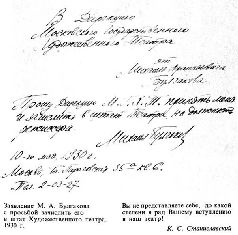 В Дирекцию
Московского Государственного
Художественного Театра
Михаила Афанасьевича
Булгакова
Прошу Дирекцию М.Х.Т. принять меня
и зачислить в штат Театра на должность
режиссера
Михаил Булгаков
10-го мая 1930 г.
Москва, Б. Пироговск. 35а кв. 6.
Тел. 2-03-27.
Заявление М. А. Булгакова
с просьбой зачислить его
в штат Художественного театра.
1930 г.
Вы не представляете себе, до какой
степени я рад Вашему вступлению
в наш театр!
К. С. Станиславский